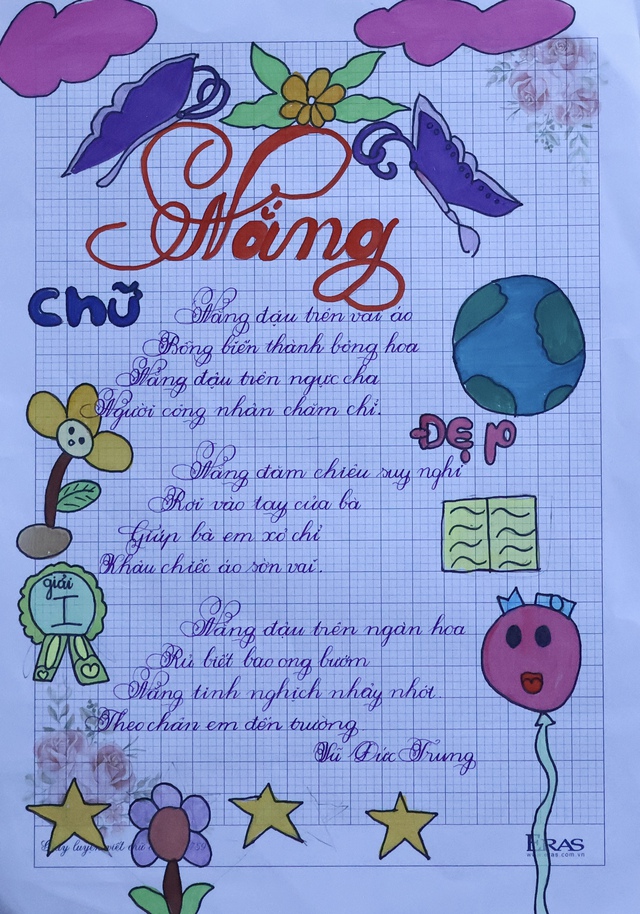 Nắng
chữ
Nắng đậu trên vai áo
Bỗng biến thành bông hoa
Nắng đậu trên ngực cha
Người công nhân chăm chỉ.
ĐẸP
Nắng đăm chiêu suy nghĩ
Rơi vào tay của bà
Giúp bà em xỏ chỉ
Khâu chiếc áo sờn vai.
giải
I
Nắng đậu trên ngàn hoa
Rủ biết bao ong bướm
Nắng tinh nghịch nhảy nhót.
Theo chân em đến trường
Vũ Đức Trung
luyện viết chữ
ERAS
www.eras.com.vn